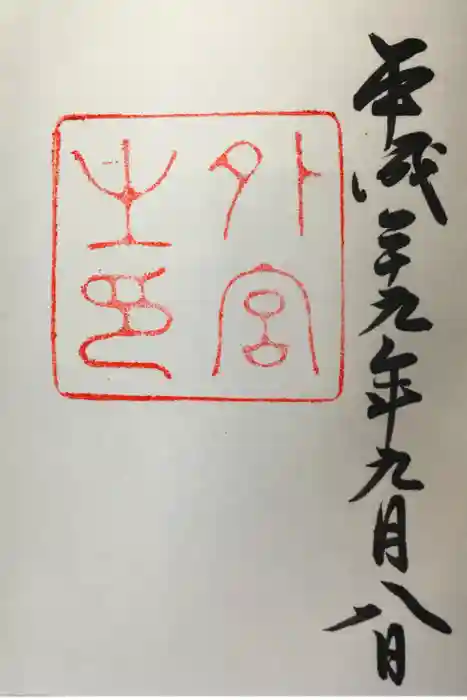 平成二十九年九月八日
外宮
之印